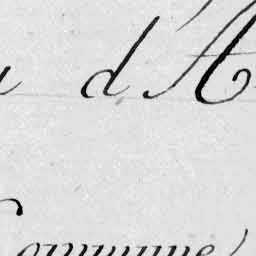 d'H
Commune